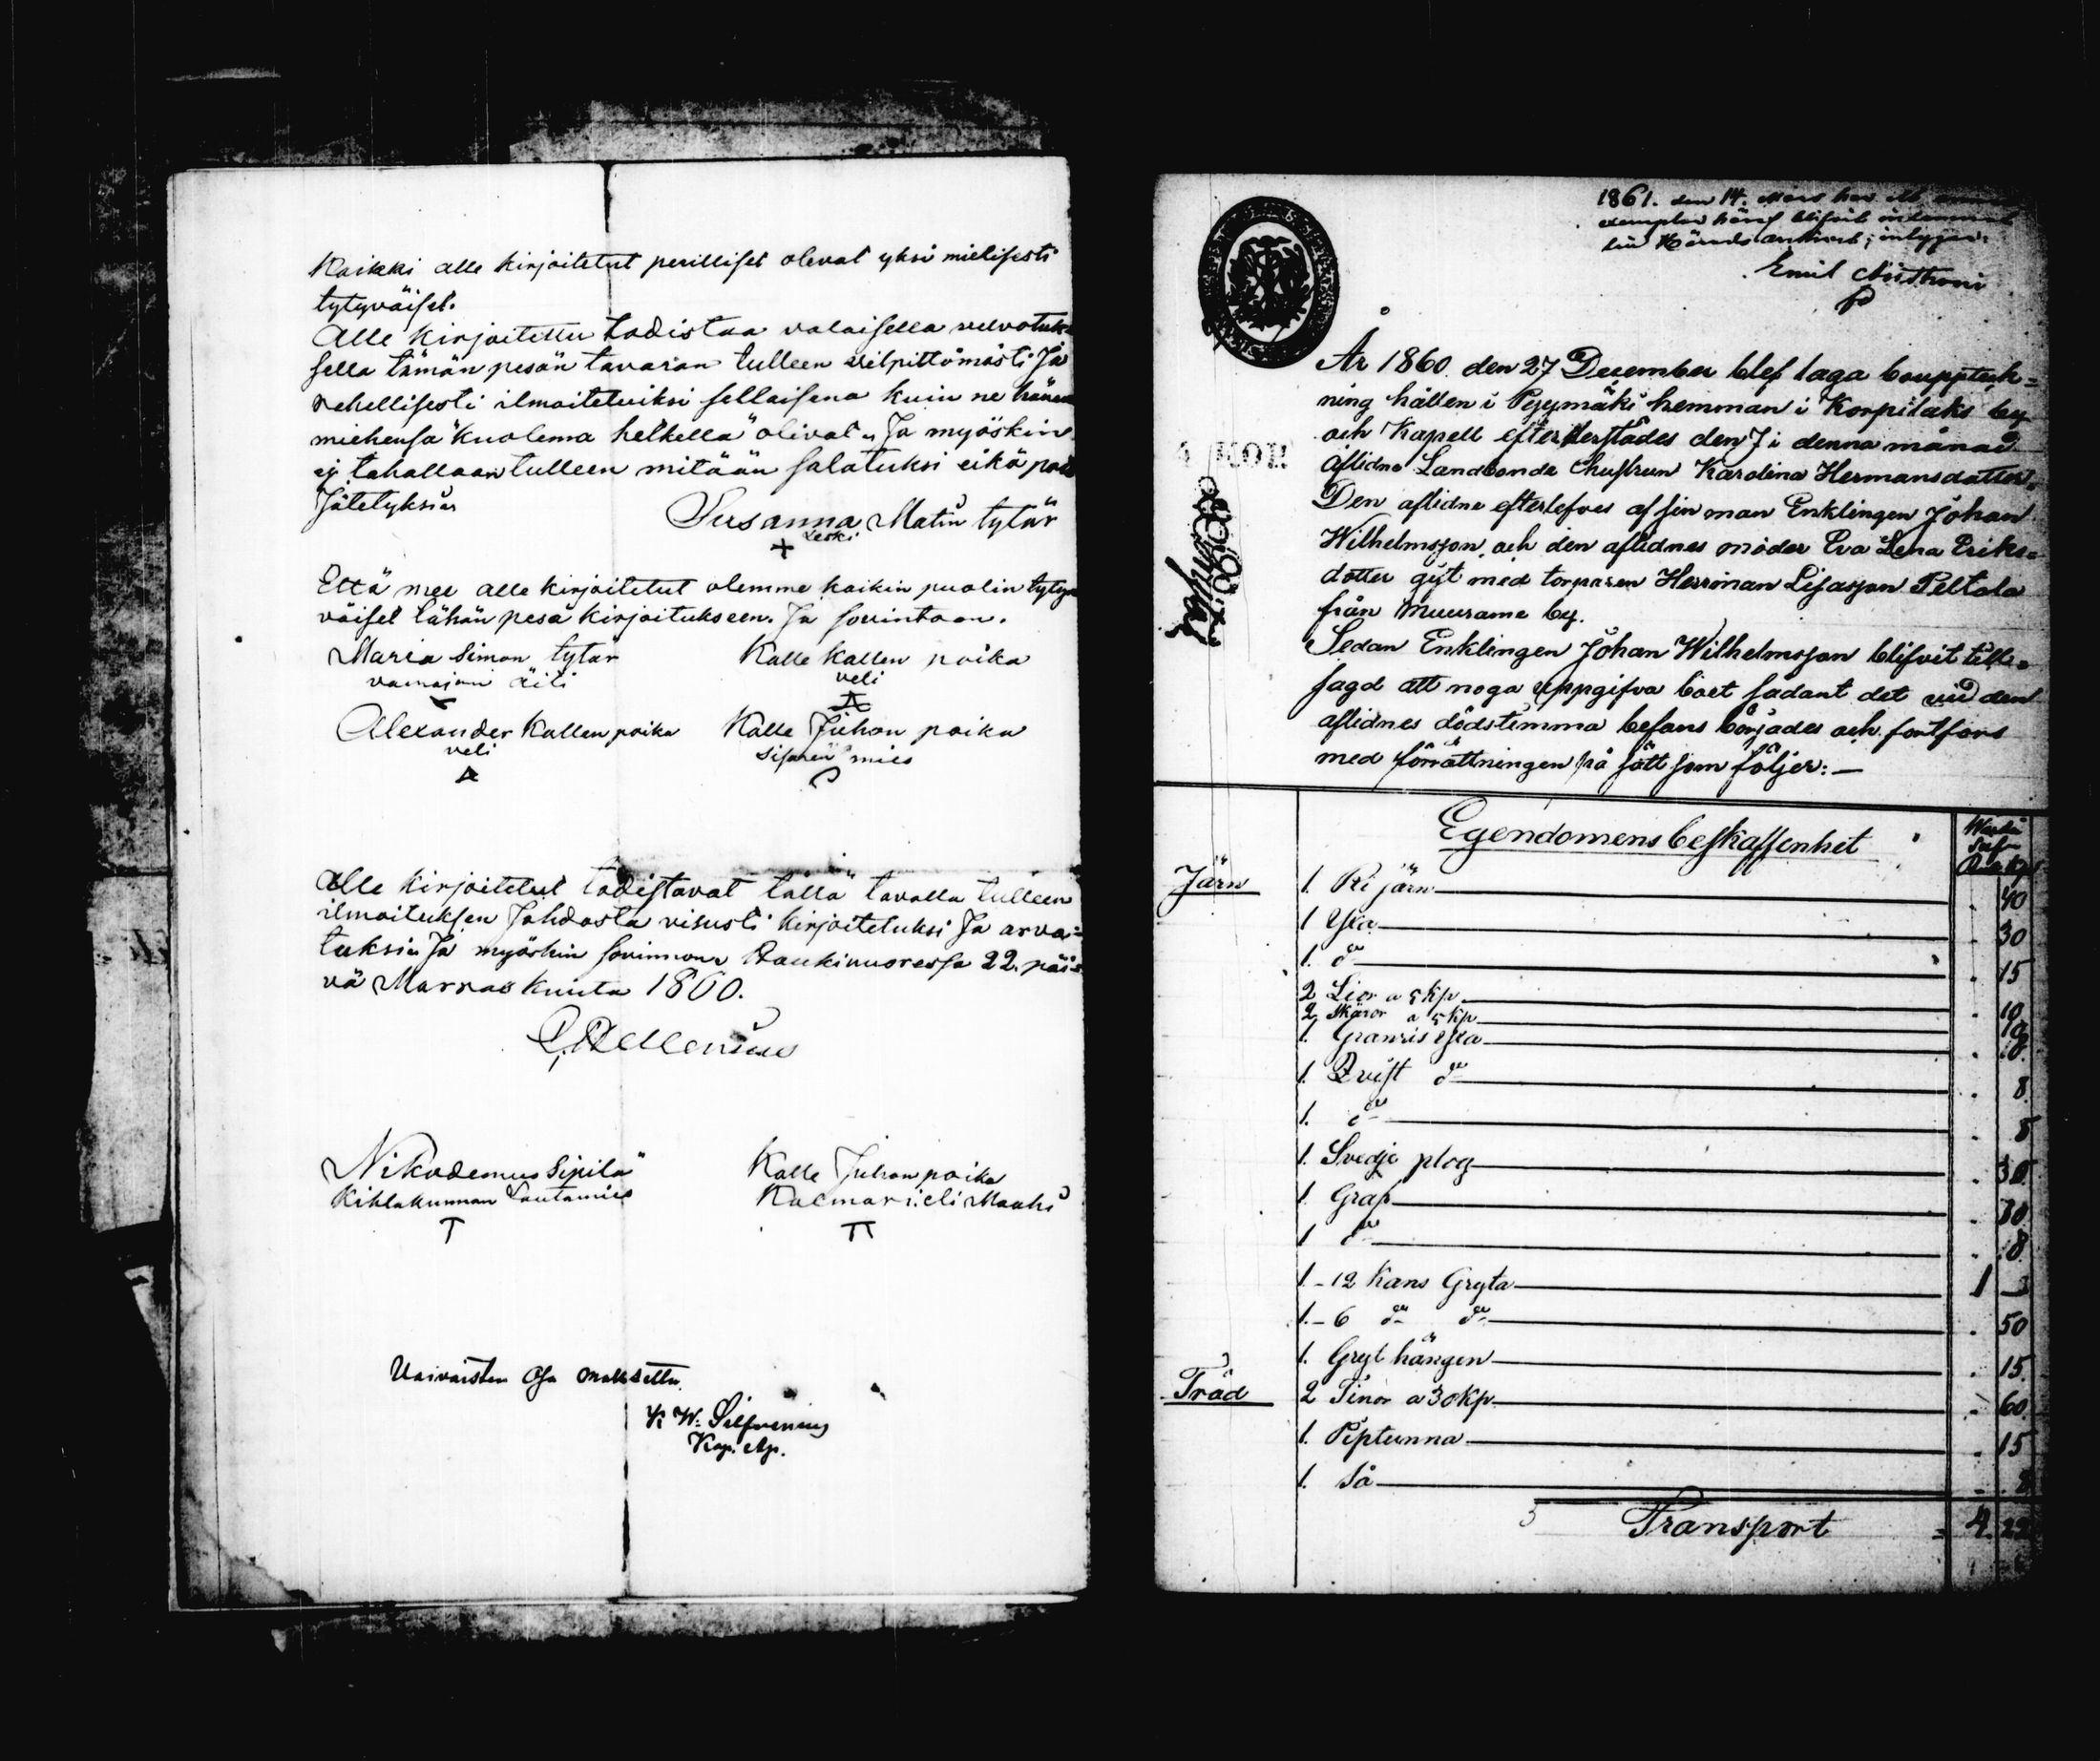 Kaikki alle kirjoitetut perilliset olevat yksi mielisesti
tytyväiset.
Alle kirjoitettu todistaa valaisella velvotuk-
sella tämän pesän tavaran tulleen vilpittömästi Ja
rehellisesti ilmoitetuiksi sellaisena kuin ne hänen
miehensä kuolema hetkellä olivat. Ja myöskin
ej tahallaan tulleen mitään salatuksi eikä pois
Jätetyksi.
Susanna Matin tytär
Leski
Että mee alle kirjoitetut olemme kaikin puolin tyty-
väiset tähän pesä kirjoitukseen. Ja sovintoon.
Maria Simon tytär
vainajan äiti
Kalle Kallen poika
veli
Alexander Kallen poika
veli
Kalle Juhon poika
Sisaren mies
Alle kirjoitetut todistavat tällä tavalla tulleen
ilmoituksen Johdosta visusti kirjoitetuksi Ja arva-
tuksi. Ja myöskin sovinnon. Raukivuoressa 22. päi-
vä Marraskuuta 1860.
Nikodemus Sipilä
Kihlakunnan Lautamies
Kalle Juhon poika
Vaivaisten Osa maksettu.
K W. Silfvenius
Kap. Ap.
1861. den 14. Mars har ett
exemplar häraf blifvit inlemnat
till Härads arkivet; intygar:
Emil
År 1860 den 27 December blef laga bouppteck-
ning hållen i Pyymäki hemman i Korpilaks by
och Kapell efter derstädes den 7 i denna månad
aflidne Landbonde hustrun Karolina Hermansdotter.
Den aflidne efterlefves af sin man Enklingen Johan
Wilhelmsson, och den aflidnes moder Eva Lena Eriks-
dotter gift med torparen Herman Lisasson Peltola
från Muurame by.
Sedan Enklingen Johan Wilhelmsson blifvit till-
sagd att noga uppgifva boet sådant det vid den
aflidnes dödstimma befans börjades och fortfors
med förrättningen på sätt som följer:—
Egendomens beskaffenhet
Järn 1. Ri järn . 40
1 Yxa . 30
1. do . 15
2 Liar a 5 kp . 10
2 Skäror a 5 kp . 10
1. Granris Yxa . 8.
1. Qvist do . 8
1. do . 8
1. Svedje plog . 30
1. Graf . 30
1 do . 8
1 - 12 Kans Gryta 1 -
1. - 6 do do . 50
1. Gryt hängen . 15
Träd 2 Tinor a 30 kp . 60
1. Piptunna . 15
1. Så
Transport 4. 22